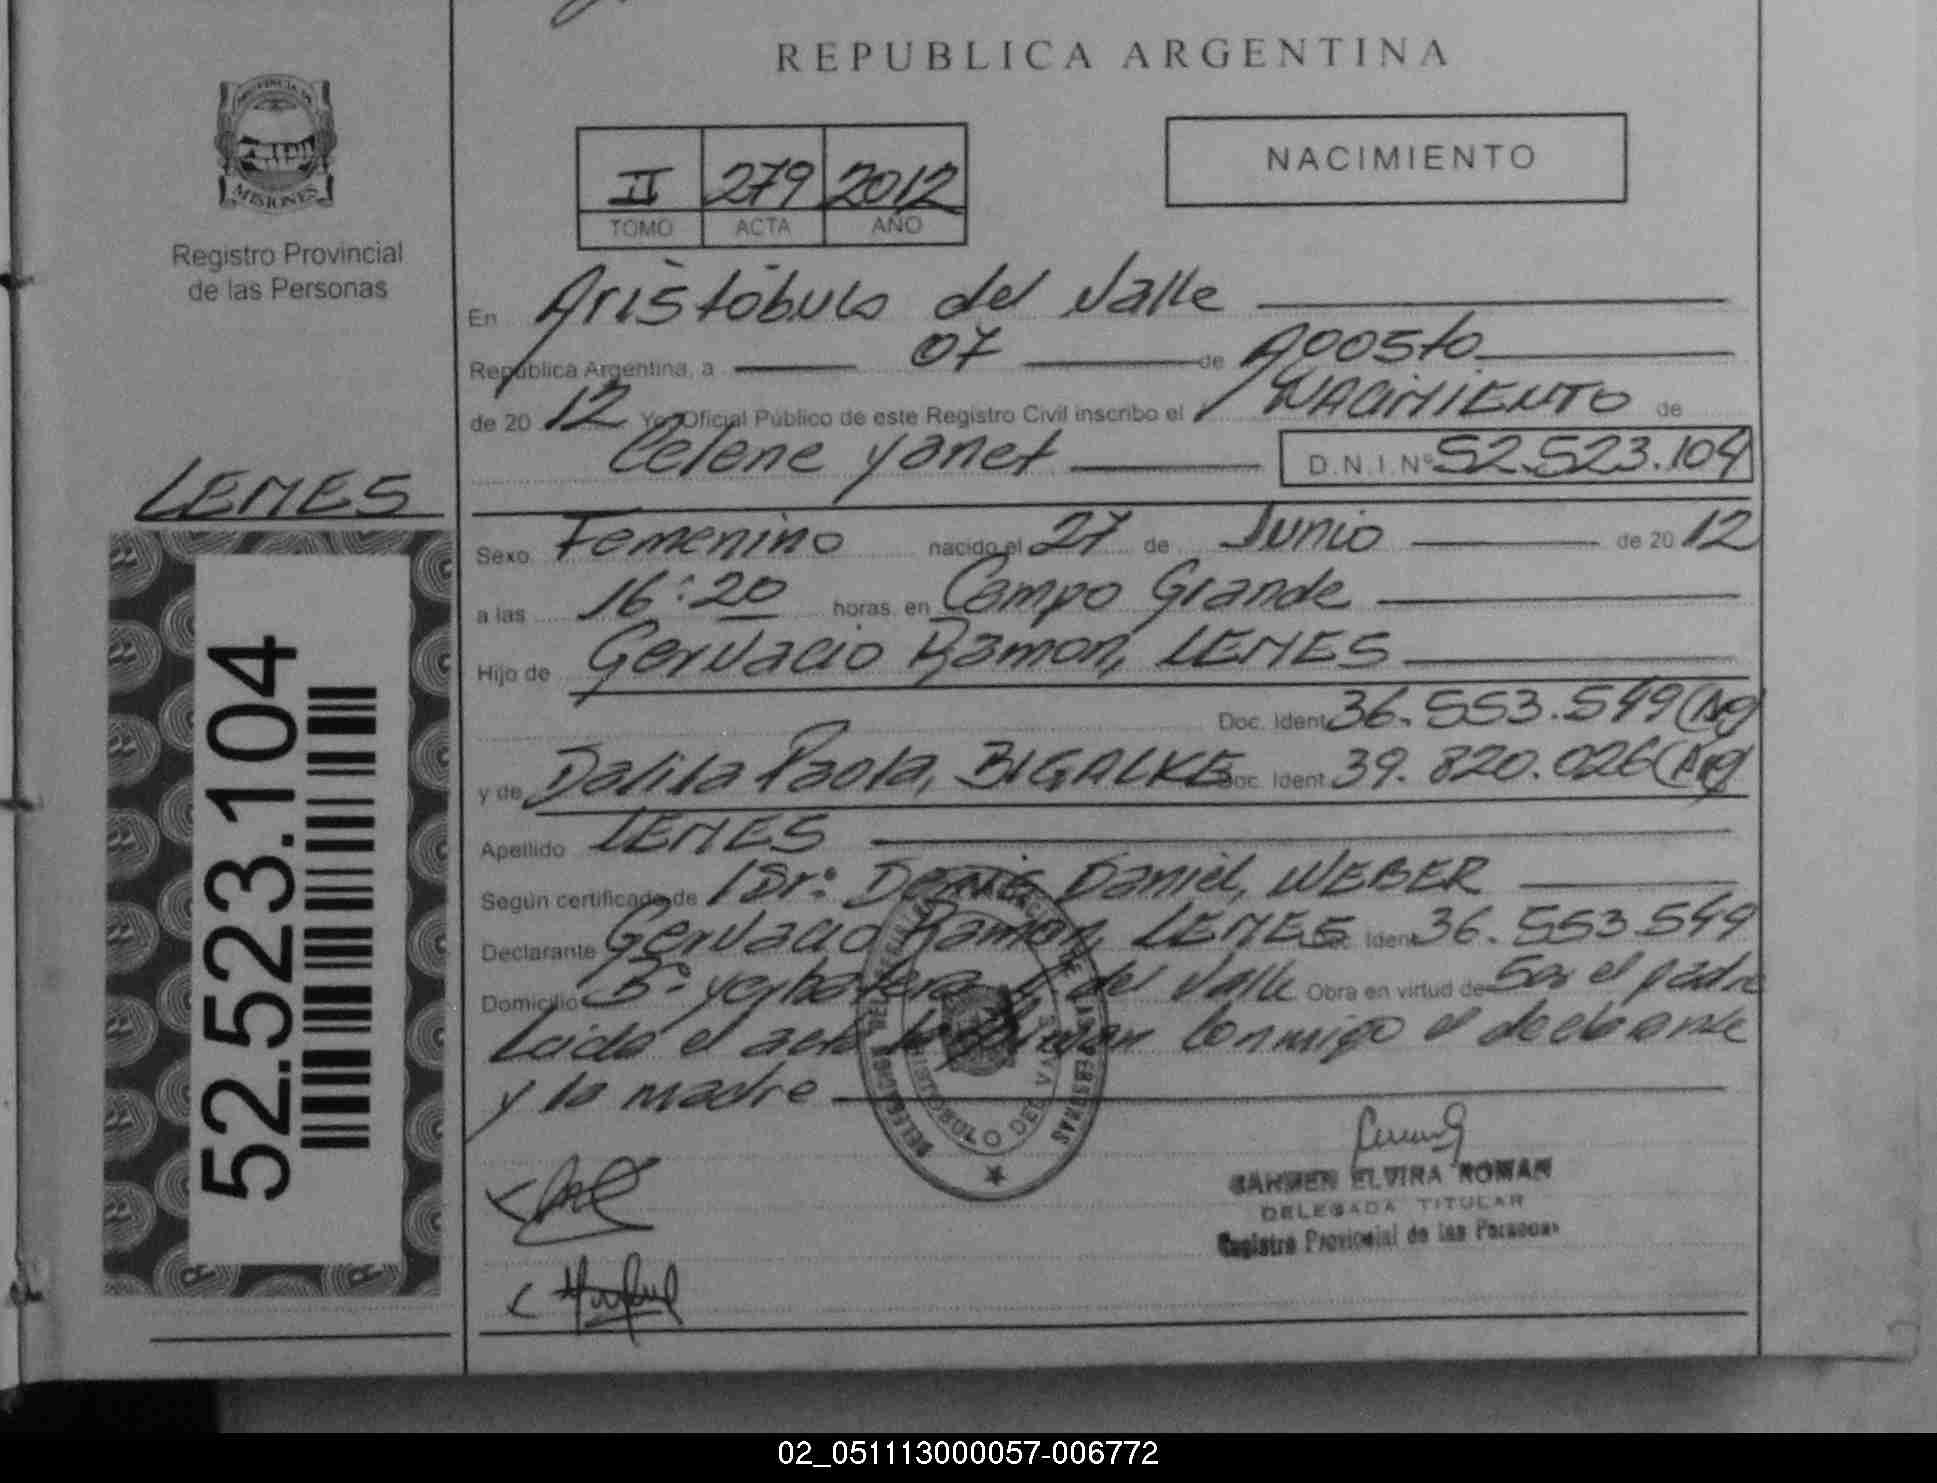 REPUBLICA ARGENTINA
PROVINCIA DE
MISIONES
Registro Provincial
de las Personas
NACIMIENTO
II 279 2012
TOMO ACTA AÑO
En Aristóbulo del Valle
República Argentina, a 07 de Agosto
de 20 12 Yo, Oficial Público de este Registro Civil inscribo el NACIMIENTO de
Celene Yanet D.N.I. Nº 52.523.104
LEMES
52.523.104
Sexo Femenino nacido el 27 de Junio de 20 12
a las 16:20 horas, en Campo Grande
Hijo de Gervacio Ramon, LEMES
Doc. Ident. 36.553.549 (Arg)
y de Dalila Paola, BIGALKE Doc. Ident. 39.820.026 (Arg)
Apellido LEMES
Según certificado de Dr: Denis Daniel, WEBER
Declarante Gervacio Ramon, LEMES Doc. Ident. 36.553.549
Domicilio Bº yerbatera A. del Valle Obra en virtud de Ser el padre
Leida el acta la firman conmigo el declarante
y la madre
ARISTOBULO DEL VALLE
CARMEN ELVIRA ROMAN
DELEGADA TITULAR
Registro Provincial de las Personas
02_051113000057-006772